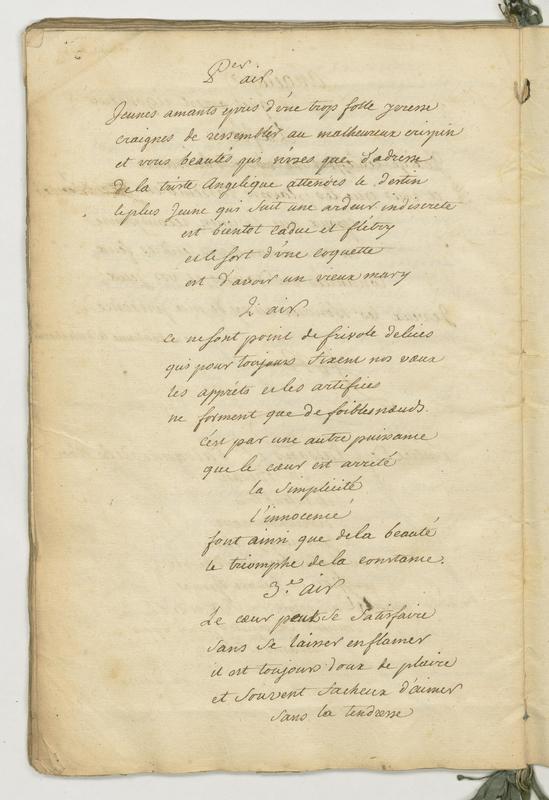 Per air
Jeunes amants yvrés d'une trop folle yvresse
craignés de ressembler au malheureux crispin
et vous beautés qui n'usés que d'adresse
de la triste Angelique attendés le destin
le plus jeune qui suit une ardeur indiscrete
est bientot caduc et flétry
et le sort d'une coquette
est d'avoir un vieux mary
2e air
ce ne sont point de frivole delices
qui pour toujours fixent nos vœux
les apprêts et les artifices
ne forment que de foibles nœuds.
c'est par une autre puissance
que le cœur est arrêté
la simplicité
l'innocence
font ainsi que de la beauté
le triomphe de la constance.
3.e air
Le cœur peut se satisfaire
sans se laisser enflamer
il est toujours doux de plaire
et souvent facheux d'aimer
sans la tendresse